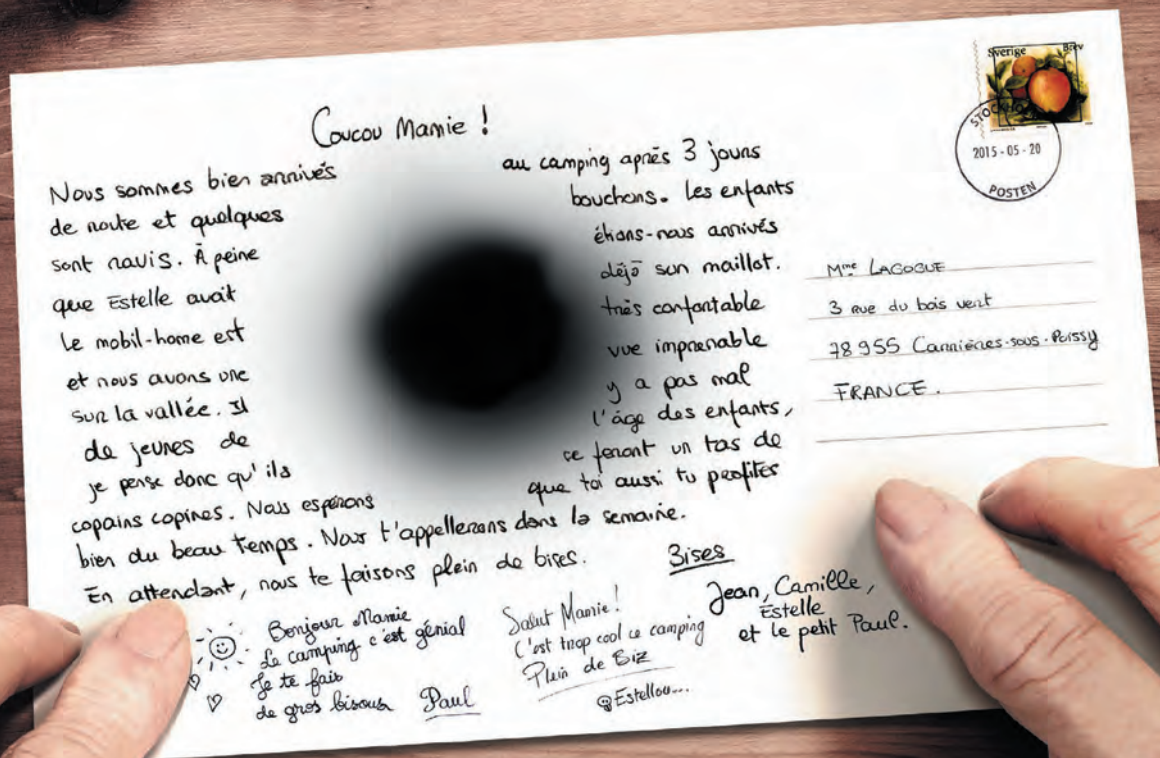 Coucou Mamie !
Nous sommes bien arrivés au camping après 3 jours
de route et quelques bouchons. Les enfants
sont ravis. À peine étions-nous arrivés
que Estelle avait déjà son maillot.
Le mobil-home est très confortable
et nous avons une vue imprenable
sur la vallée. Il y a pas mal
de jeunes de l'âge des enfants,
je pense donc qu'ils se feront un tas de
copains copines. Nous espérons que toi aussi tu profites
bien du beau temps. Nous t'appellerons dans la semaine.
En attendant, nous te faisons plein de bises.
Bises
Jean, Camille,
Estelle
et le petit Paul.
Bonjour Mamie
Le camping c'est génial
Je te fais
de gros bisous Paul
Salut Mamie !
C'est trop cool ce camping
Plein de Biz
@Estellou...
Sverige Brev
STOCKHOLM
2015-05-20
POSTEN
Mme LAGOGUE
3 rue du bois vert
78955 Carrières-sous-Poissy
FRANCE.